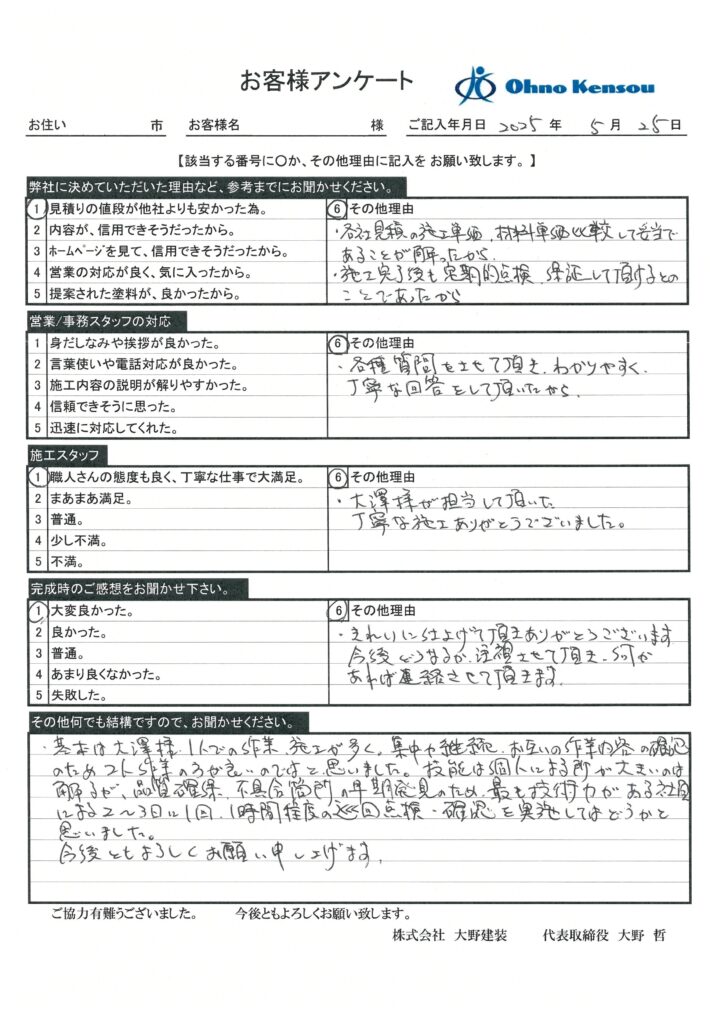 お客様アンケート
Ohno Kensou
お住い 市 お客様名 様 ご記入年月日 2025 年 5 月 25 日
【該当する番号に〇か、その他理由に記入を お願い致します。】
弊社に決めていただいた理由など、参考までにお聞かせください。
1 見積りの値段が他社よりも安かった為。
2 内容が、信用できそうだったから。
3 ホームページを見て、信用できそうだったから。
4 営業の対応が良く、気に入ったから。
5 提案された塗料が、良かったから。
6 その他理由
・各社見積の施工単価、材料単価比較して妥当で
あることが解ったから、
・施工完了後も定期的点検、保証して頂けるとの
ことであったから
営業/事務スタッフの対応
1 身だしなみや挨拶が良かった。
2 言葉使いや電話対応が良かった。
3 施工内容の説明が解りやすかった。
4 信頼できそうに思った。
5 迅速に対応してくれた。
6 その他理由
・各種質問をさせて頂き、わかりやすく、
丁寧な回答をして頂いたから、
施工スタッフ
1 職人さんの態度も良く、丁寧な仕事で大満足。
2 まあまあ満足。
3 普通。
4 少し不満。
5 不満。
6 その他理由
・大澤様が担当して頂いた
丁寧な施工ありがとうございました。
完成時のご感想をお聞かせ下さい。
1 大変良かった。
2 良かった。
3 普通。
4 あまり良くなかった。
5 失敗した。
6 その他理由
・きれいに仕上げて頂きありがとうございます
今後どうなるか、注視させて頂き、
あれば連絡させて頂きます。
その他何でも結構ですので、お聞かせください。
・基本は大澤様、1人での作業、施工が多く、集中や継続、お互いの作業内容の確認
のため2人作業の方が良いのではと思いました。技能は個人による所が大きいのは
解るが、品質確保、不具合箇所の早期発見のため、最も技術力がある社員
による2〜3日に1回、1時間程度の巡回点検・確認を実施してはどうかと
思いました。
今後ともよろしくお願い申し上げます。
ご協力有難うございました。 今後ともよろしくお願い致します。
株式会社 大野建装 代表取締役 大野 哲